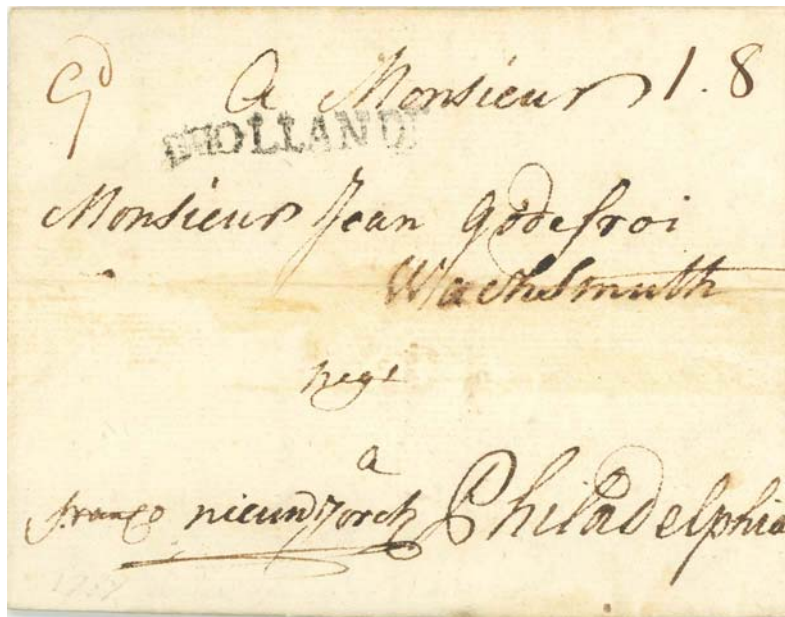 A Monsieur 1.8
D'HOLLANDE
Monsieur Jean Godefroi
Wachsmuth
negt
a
franco nieuw Jorck Philadelphia